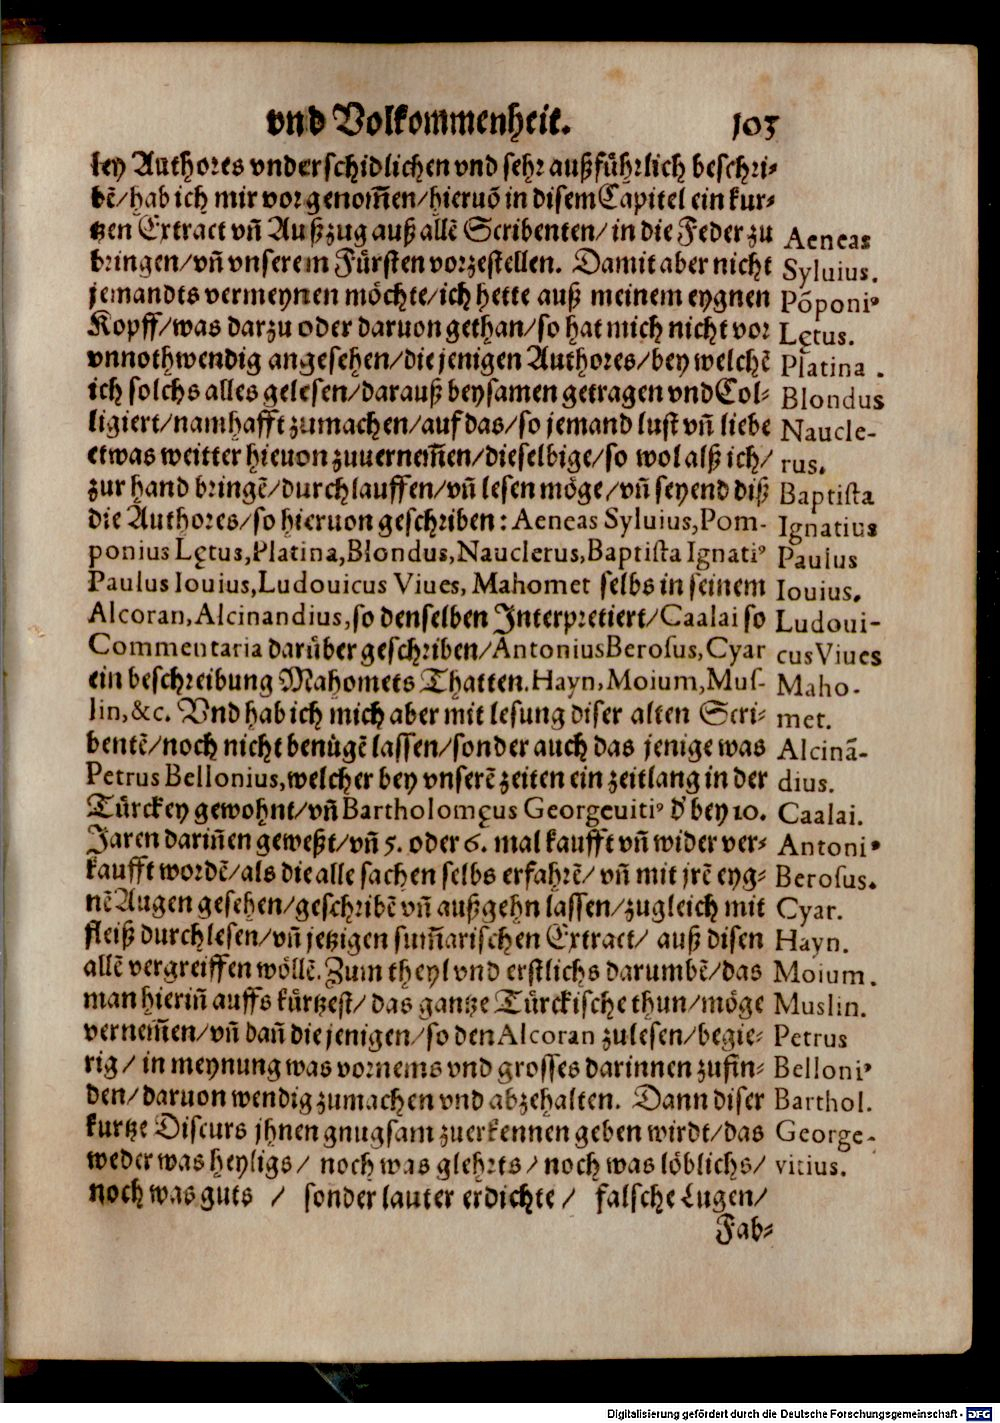 vnd Volkommenheit. 103
ley Authores vnderschidlichen vnd sehr außführlich beschri⸗
bẽ/hab ich mir vorgenom̃en/hieruõ in disem Capitel ein kur⸗
tzen Extract vñ Außzug auß allẽ Scribenten/in die Feder zu
bringen/vñ vnserem Fürsten vorzestellen. Damit aber nicht
jemandts vermeynen möchte/ich hette auß meinem eygnen
Kopff/was darzu oder daruon gethan/so hat mich nicht vor
vnnothwendig angesehen/die jenigen Authores/bey welchẽ
ich solchs alles gelesen/darauß beysamen getragen vnd Col⸗
ligiert/namhafft zumachen/auf das/so jemand lust vñ liebe
etwas weitter hieuon zuuernem̃en/dieselbige/so wol alß ich/
zur hand bringẽ/durchlauffen/vñ lesen möge/vñ seyend diß
die Authores/so hieruon geschriben: Aeneas Syluius,Pom-
ponius Lętus,Platina,Blondus,Nauclerus,Baptista Ignatiꝰ
Paulus Iouius,Ludouicus Viues, Mahomet selbs in seinem
Alcoran,Alcinandius,so denselben Interpretiert/Caalai so
Commentaria darüber geschriben/Antonius Berosus,Cyar
ein beschreibung Mahomets Thatten.Hayn,Moium,Mus-
lin,&c. Vnd hab ich mich aber mit lesung diser alten Scri⸗
bentẽ/noch nicht benügẽ lassen/sonder auch das jenige was
Petrus Bellonius,welcher bey vnserẽ zeiten ein zeitlang in der
Türckey gewohnt/vñ Bartholomęus Georgeuitiꝰ d' bey 10.
Jaren dariñen geweßt/vñ 5. oder 6. mal kaufft vñ wider ver⸗
kaufft wordẽ/als die alle sachen selbs erfahrẽ/ vñ mit jrẽ eyg⸗
nẽ Augen gesehen/geschribẽ vñ außgehn lassen/zugleich mit
fleiß durchlesen/vñ jetzigen sum̃arischen Extract/ auß disen
allẽ vergreiffen wöllẽ. Zum theyl vnd erstlichs darumbẽ/das
man hieriñ auffs kürtzest/ das gantze Türckische thun/möge
vernem̃en/vñ dañ die jenigen/so den Alcoran zulesen/begie⸗
rig/ in meynung was vornems vnd grosses darinnen zufin⸗
den/daruon wendig zumachen vnd abzehalten. Dann diser
kurtze Discurs jhnen gnugsam zuerkennen geben wirdt/das
weder was heyligs/ noch was glehrts/noch was löblichs/
noch was guts / sonder lauter erdichte / falsche Lugen/
Fab⸗
Aeneas
Syluius.
Põponiꝰ
Lętus.
Platina .
Blondus
Naucle-
rus.
Baptista
Ignatius
Paulus
Iouius.
Ludoui-
cus Viues
Maho-
met.
Alcinã-
dius.
Caalai.
Antoniꝰ
Berosus.
Cyar.
Hayn.
Moium.
Muslin.
Petrus
Belloniꝰ
Barthol.
George-
vitius.
Digitalisierung gefördert durch die Deutsche Forschungsgemeinschaft - DFG